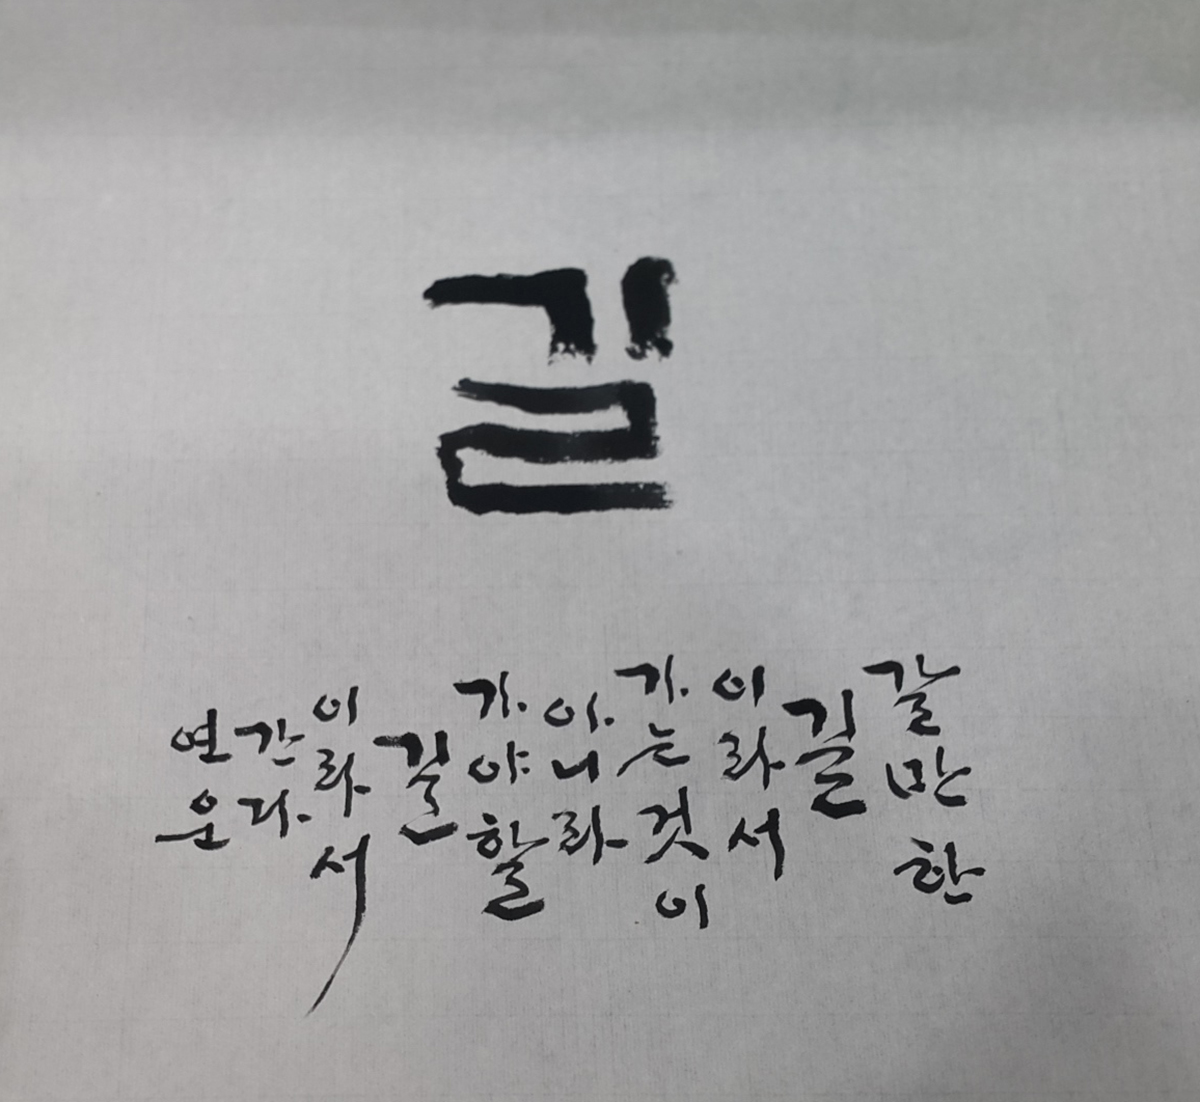 길
갈만한
길
이라서
가는것이
아니라
가야할
길
이라서
간다.
연운